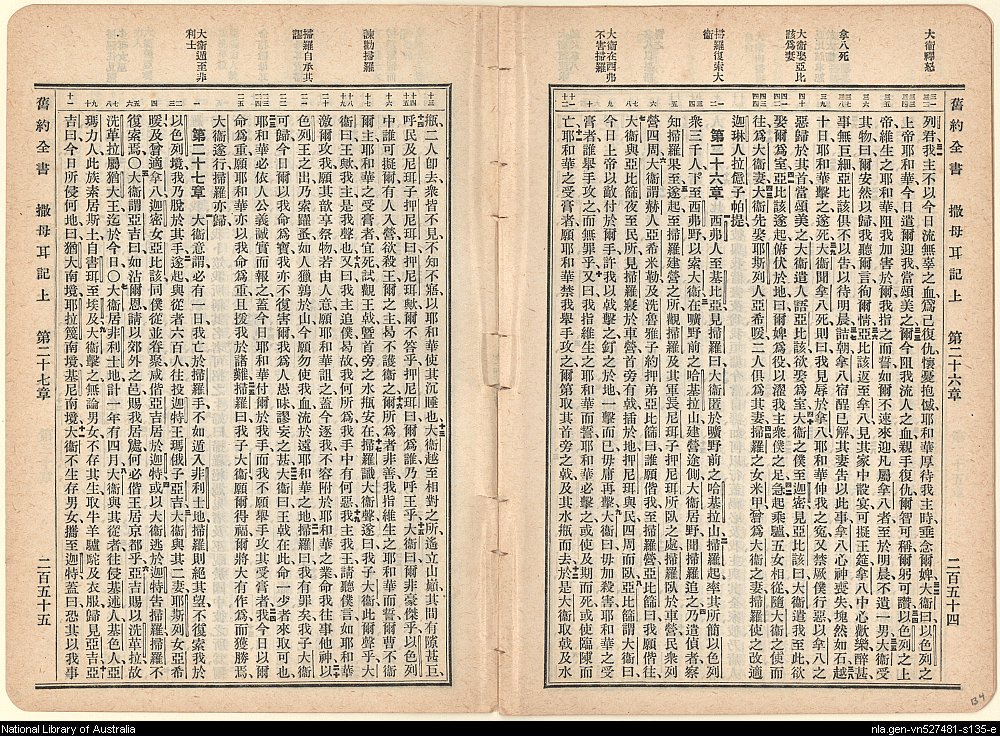 大衛釋怒
拿八死
大衛娶亞比該爲妻
掃羅復索大衛
大衛在西弗不害掃羅
舊約全書 撒母耳記上 第二十六章 二百五十四
列君我主不以今日流無辜之血爲己復仇懷憂抱憾耶和華厚待我主時垂念爾婢大衛曰以色列之
上帝耶和華今日遣爾迎我當頌美之爾今阻我流人之血親手復仇爾智可稱爾躬可讚以色列之上
帝維生之耶和華阻我加害於爾我指之而誓如爾不速來迎凡屬拿八者至於明晨不遺一男大衛受
其物曰爾安然以歸我聽爾言徇爾情亞比該返至拿八見其家中設宴可擬王筵拿八中心歡樂醉甚
事無巨細亞比該俱不以告以待明晨詰朝拿八宿酲已解其妻告以此事拿八心神喪失塊然如石越
十日耶和華擊之遂死大衛聞拿八死則曰我見辱於拿八耶和華伸我之寃又禁厥僕行惡以拿八之
惡歸於其首當頌美之大衛遣人語亞比該欲娶爲室大衛之僕至迦密見亞比該曰大衛遣我至此欲
娶爾爲室亞比該遂起俯伏於地曰爾婢爲役以濯我主衆僕之足急起乘驢五女相從隨大衛之使而
往爲大衛妻大衛先娶耶斯列人亞希暖二人俱爲其妻掃羅之女米甲曾爲大衛之妻掃羅使之改適
迦琳人拉億子帕提
第二十六章 西弗人至基比亞見掃羅曰大衛匿於曠野前之哈基拉山掃羅起率其所簡以色列
衆三千人下至西弗野以索大衛在曠野前之哈基拉山建營途側大衛居野聞掃羅追之乃遣偵者察
知掃羅果至遂起至掃羅建營之所觀掃羅及其軍長尼珥子押尼珥所臥之處掃羅臥於車營民衆列
營四周大衛謂赫人亞希米勒及洗魯雅子約押弟亞比篩曰誰願偕我至掃羅營亞比篩曰我願偕往
大衛與亞比篩夜至民所見掃羅寢於車營首旁有戟插於地押尼珥與民四周而臥亞比篩謂大衛曰
今日上帝以敵付於爾手許我以戟擊之釘之於地一擊而已毋庸再擊大衛曰毋加殺害耶和華之受
膏者誰舉手攻之而無罪乎又曰我指維生之耶和華而誓耶和華必擊之或使及期而死或使臨陳而
亡耶和華之受膏者願耶和華禁我舉手攻之爾第取其首旁之戟及其水瓶而去於是大衛取戟及水
諫勸掃羅
掃羅自承其謬
大衛遁至非利士
瓶二人卽去衆皆不見不知不寤以耶和華使其沉睡也大衛越至相對之所遙立山巔其間有隙甚巨
呼民及尼珥子押尼珥曰押尼珥歟爾不答乎押尼珥曰爾爲誰乃呼王乎大衛曰爾非豪傑乎以色列
中誰可擬爾有人入營欲弒王爾之主曷不護衞之爾所爲者非善我指維生之耶和華而誓爾曹不衞
爾主耶和華之受膏者宜死試觀王戟曁首旁之水瓶安在掃羅識大衛聲遂曰我子大衛此爾聲乎大
衛曰王歟我主是我聲也又曰我主追僕曷故我何所爲我手中有何惡我主我王請聽僕言如耶和華
激爾攻我願其歆享祭物若由人意願耶和華詛之蓋今逐我不容附於耶和華之業命我往事他神以
色列王之出乃索羅蚤如人獵鷓於山今願勿使我血流於遠耶和華之地掃羅曰我有罪矣我子大衛
可歸今日爾以我命爲寶我亦不復害爾我爲人愚昧謬妄之甚大衛曰王戟在此命一少者來取可也
耶和華必依人公義誠實而報之蓋今日耶和華付爾於我手而我不願舉手攻其受膏者我今日以爾
命爲重願耶和華亦以我命爲重且援我於諸難掃羅曰我子大衛願爾得福爾將大有作爲而獲勝焉
大衛遂行掃羅亦歸
第二十七章 大衛意謂必有一日我亡於掃羅手不如遁入非利士地掃羅則絕其望不復索我於
以色列境我乃脫於其手遂起與從者六百人往投迦特王瑪俄子亞吉大衛與其二妻耶斯列女亞希
暖及曾適拿八迦密女亞比該同僕從並眷聚咸偕亞吉居於迦特或以大衛逃於迦特告掃羅掃羅不
復索焉〇大衛謂亞吉曰如沾爾恩請以郊外之邑賜我居處何必偕王居京都乎亞吉賜以洗革拉故
洗革拉屬猶大王迄於今日〇大衛居非利士地計一年有四月大衛與其從者往侵基述人基色人亞
瑪力人此族素居斯土自書珥至埃及大衛擊之無論男女不存其生取牛羊驢駝及衣服歸見亞吉亞
吉曰今日所侵何地曰猶大南境耶拉篾南境基尼南境大衛不生存男女攜至迦特蓋曰恐其以我事
舊約全書 撒母耳記上 第二十七章 二百五十五
B4
National Library of Australia
nla.gen-vn527481-s135-e